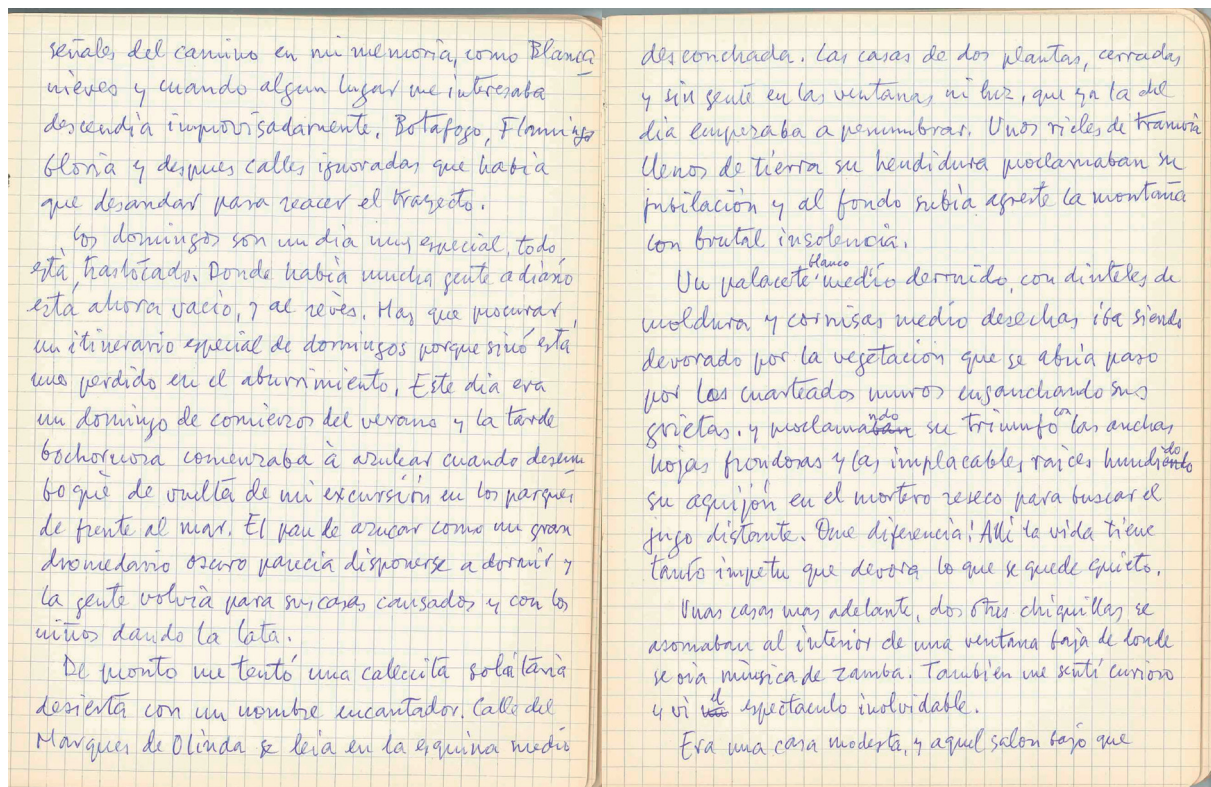 señales del camino en mi memoria, como Blanca
nieves y cuando algun lugar me interesaba
descendia improvisadamente. Botafogo, Flamingo
Gloria y despues calles ignoradas que habia
que desandar para reacer el trayecto.
Los domingos son un dia muy especial, todo
está trastocado. Donde había mucha gente a diario
esta ahora vacio, y al revés. Hay que procurar
un itinerario especial de domingos porque sinó está
uno perdido en el aburrimiento. Este dia era
un domingo de comienzos del verano y la tarde
bochornosa comenzaba a azulear cuando desem
boqué de vuelta de mi excursión en los parques
de frente al mar. El pan de azucar como un gran
dromedario oscuro parecia disponerse a dormir y
la gente volvia para sus casas cansados y con los
niños dando la lata.
De pronto me tentó una callecita solitaria
desierta con un nombre encantador. Calle del
Marques de Olinda se leia en la esquina medio
desconchada. Las casas de dos plantas, cerradas
y sin gente en las ventanas ni luz, que ya la del
dia empezaba a penumbrar. Unos rieles de tranvia
llenos de tierra su hendidura proclamaban su
jubilación y al fondo subia agreste la montaña
con brutal insolencia.
Un palacete blanco medio derruido, con dinteles de
moldura y cornisas medio desechas iba siendo
devorado por la vegetación que se abria paso
por los cuarteados muros enganchando sus
grietas. y proclamando su triunfo con las anchas
hojas frondosas y las implacables raices hundiendo
su aguijón en el mortero reseco para buscar el
jugo distante. Que diferencia! Allí la vida tiene
tanto impetu que devora lo que se quede quieto.
Unas casas mas adelante, dos o tres chiquillas se
asomaban al interior de una ventana baja de donde
se oia música de zamba. Tambien me sentí curioso
y vi el espectaculo inolvidable.
Era una casa modesta, y aquel salon bajo que